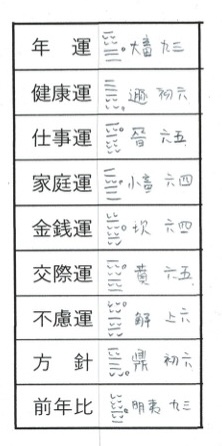 年 運 大畜 九三
健康運 遯 初六
仕事運 晋 六五
家庭運 小畜 六四
金銭運 坎 六四
交際運 賁 六五
不慮運 解 上六
方 針 鼎 初六
前年比 明夷 九三